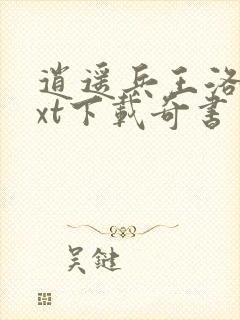 逍遥兵王洛
xt下载奇书
吴鍵